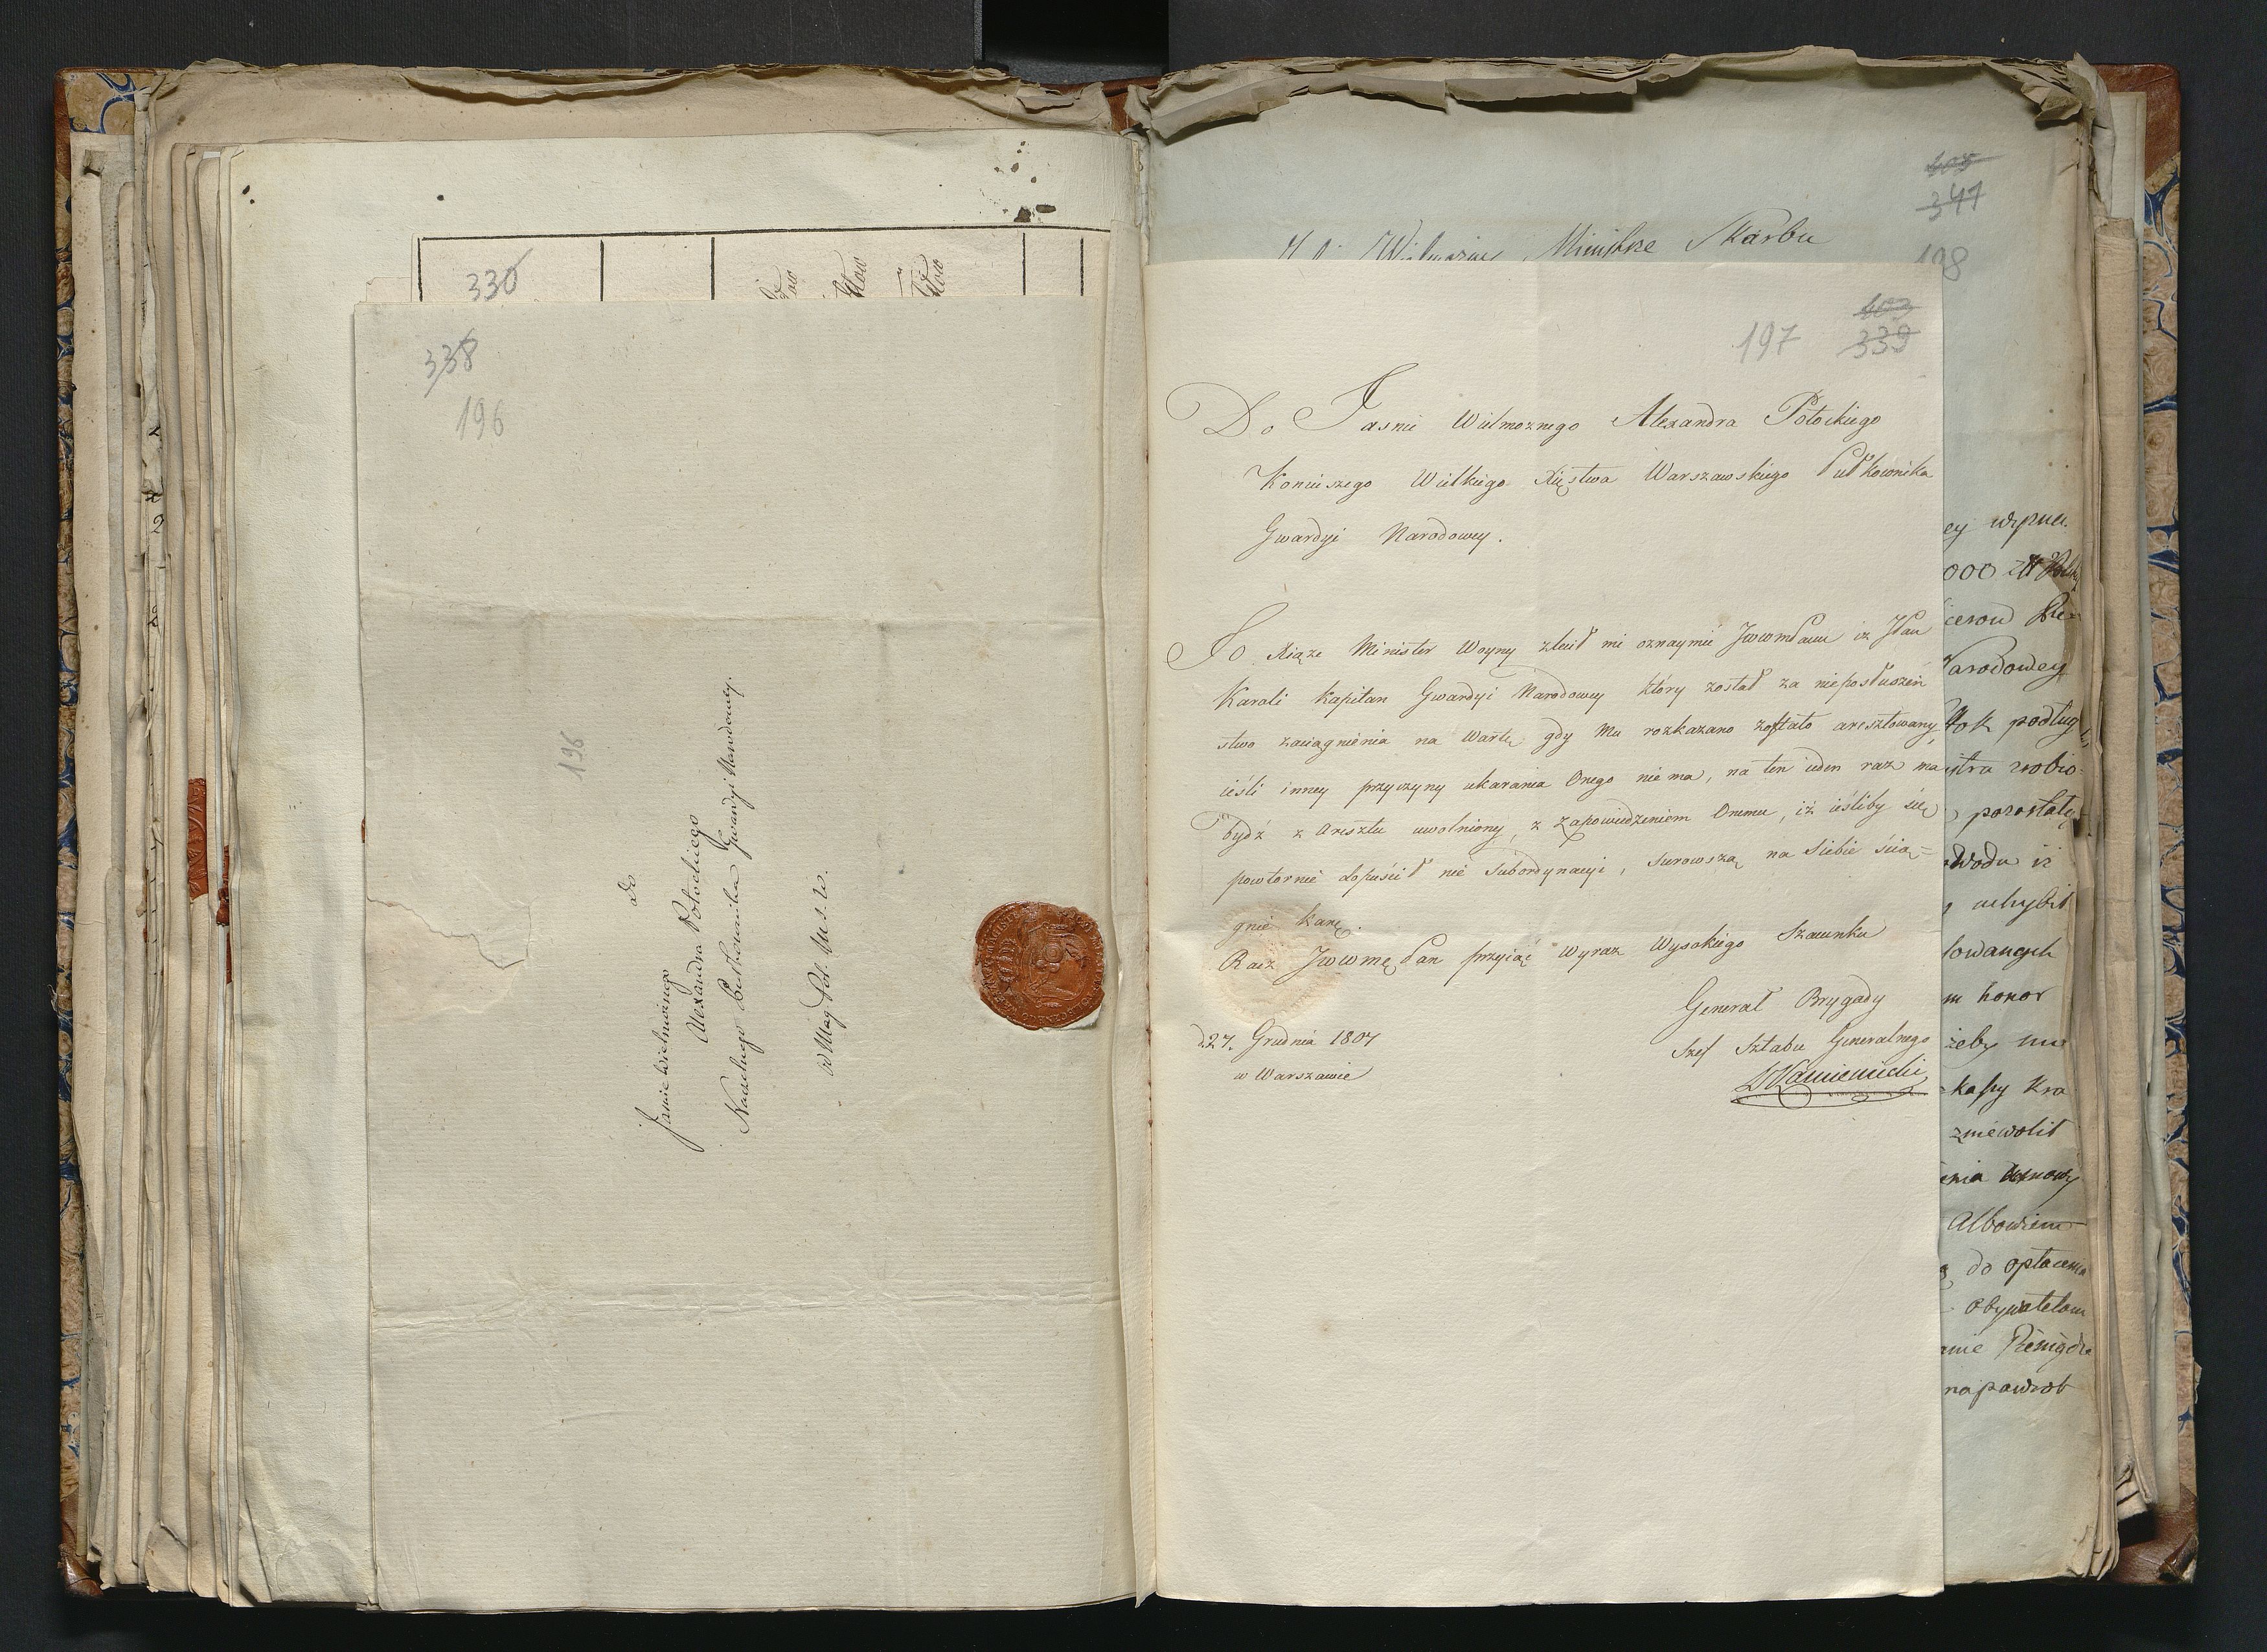 330
338
196
196
do
Jasnie Wielmożnego
Alexandra Potockiego
Naczelnego Pułkownika Gwardyi Narodowey.
w Warszawie
405
347
Ministrze Skarbu
198
403
197 339
Do Jasnie Wielmoznego Alexandra Potockiego
Koniuszego Wielkiego Xięstwa Warszawskiego Pułkownika
Gwardyi Narodowey.
JO. Xiąze Minister Woyny zlecił mi oznaymić JWWmPanu iz JPan
Karoli Kapitan Gwardyi Narodowey który został za nieposłuszeń
stwo zaciągnienia na Wartę gdy Mu rozkazano zostało aresztowany,
ieśli inney przyczyny ukarania Onego nie ma, na ten ieden raz ma
bydź z Aresztu uwolniony, z zapowiedzeniem Onemu, iż iéśliby się
powtornie dopuścił nie Subordynacyi, surowszą na Siebie ścią=
gnie karę.
Racz JWWmę Pan przyiąć wyraz Wysokiego Szacunku
Generał Brygady
Szef Sztabu Generalnego
d. 27. Grudnia 1807
w Warszawie
Kamieniecki
000
Narodowey
podług
pozostałę
uchybił
honor
żeby
Kra
zniewolił
Albowiem
do opłacenia
Obywatelom
napowrót